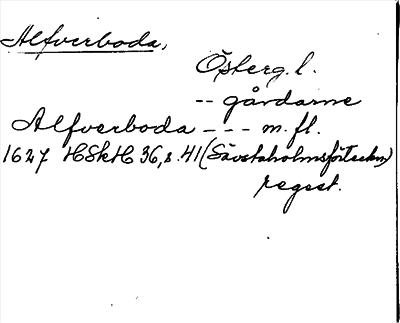 Alfverboda,
Österg. l.
-- gårdarne
Alfverboda --- m. fl.
1627 HSkH 36, s. 41 (Säfstaholmsförteckn)
regest.